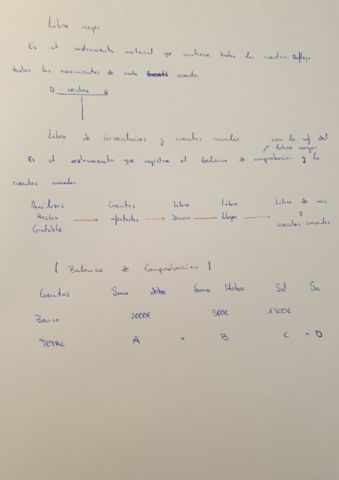 Libro mayor
Es el instrumento material que contiene todas las cuentas. Refleja
todos los movimientos de cada cuenta
D nombre H
Libro de inventarios y cuentas anuales
con la inf. del
libro mayor
Es el instrumento que registra el balance de comprobación y las
cuentas anuales
Análisis Cuentas Libro Libro Libro de inv.
Hecho → afectadas → Diario → Mayor → y
Contable cuentas anuales
[ Balance de Comprobación ]
Cuentas Suma Debe Suma Haber Sd Sa
Banco 2000€ 500€ 1500€
TOTAL A = B C = D